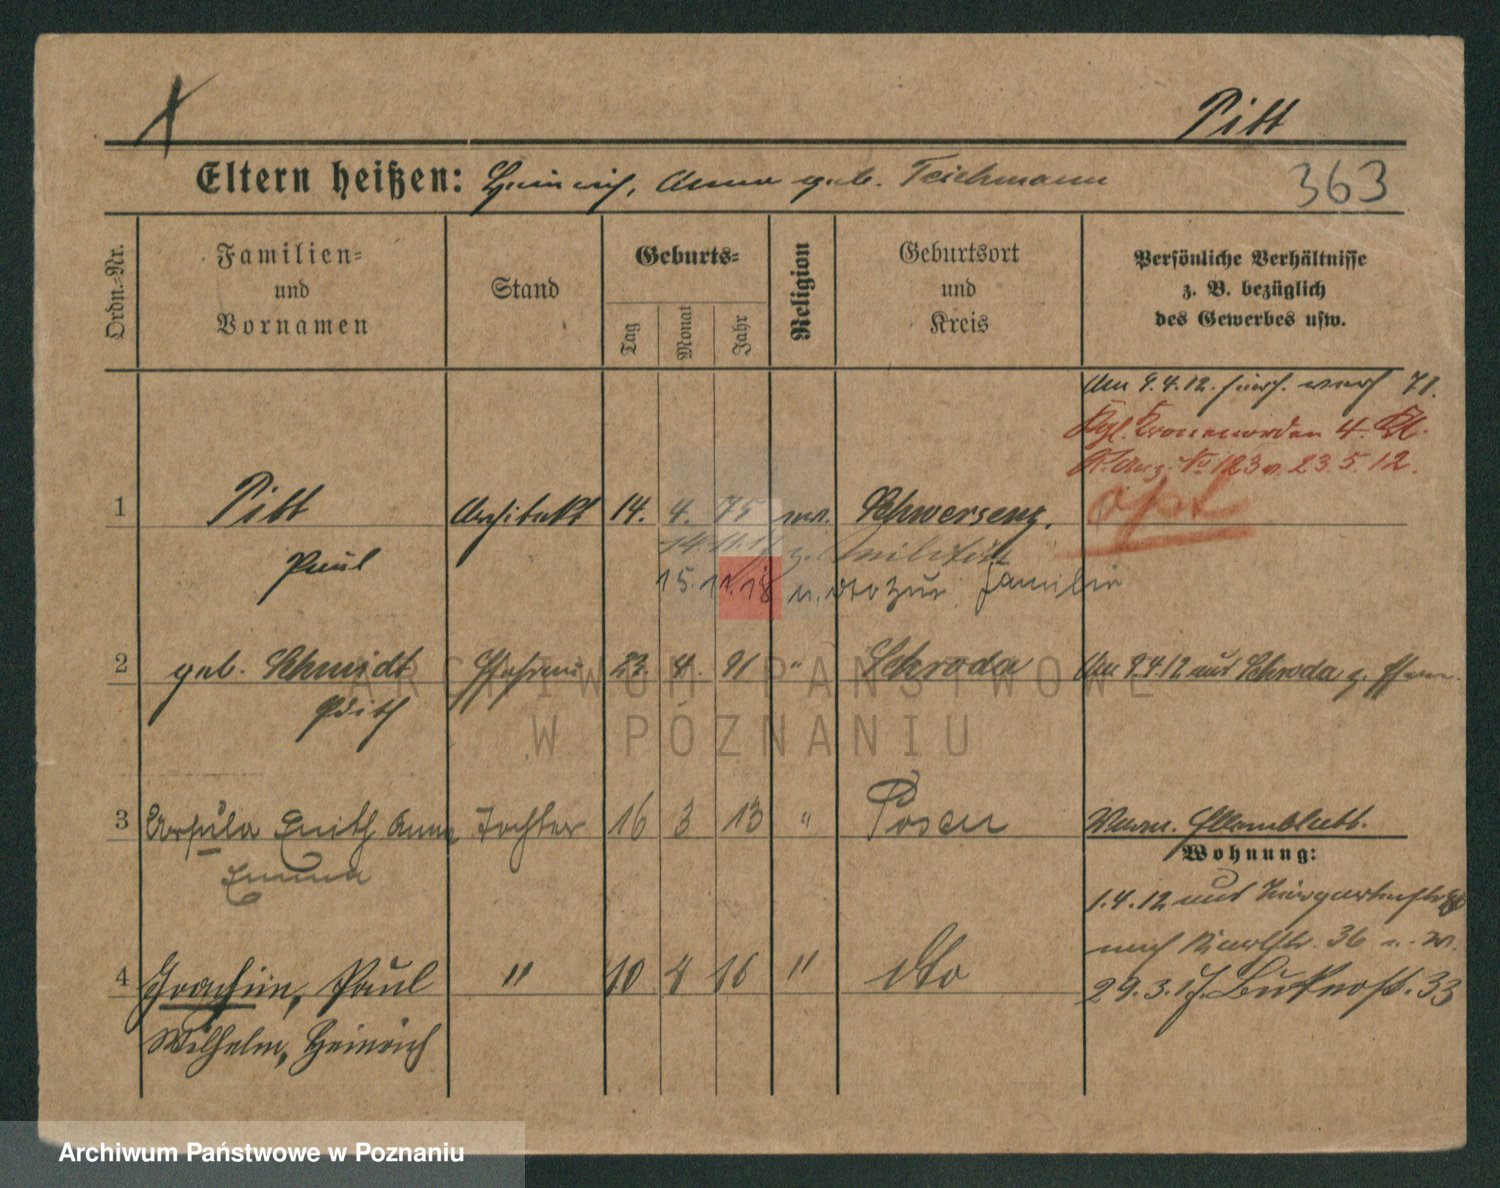 Pitt
Eltern heißen: Heinrich, Anna geb. Teichmann
363
Ordn.-Nr.
Familien- und Vornamen
Stand
Geburts-
Tag
Monat
Jahr
Religion
Geburtsort und Kreis
Persönliche Verhältnisse
z. B. bezüglich
des Gewerbes usw.
Am 9.4.12.
Kgl. Kronenorden 4. Kl.
R. Anz. No 123 v. 23.5.12.
1 Pitt Architekt 14. 4. 75 Schwersenz.
opt
14.11.17 z. Militär
Paul
15.11.18 zur Familie
2 geb. Schmidt Ehefrau 23. 4. 91 " Schroda Am 9.4.12 aus Schroda z. Ehem.
Edith
3 Ursula Edith Anna Tochter 16 3 13 " Posen
Emma
Wohnung:
1.4.12 aus
nach Karlstr. 36
4 Joachim, Paul " 10 4 16 " dto 29.3.17. 33
Wilhelm, Heinrich
ARCHIWUM PAŃSTWOWE
W POZNANIU
Archiwum Państwowe w Poznaniu